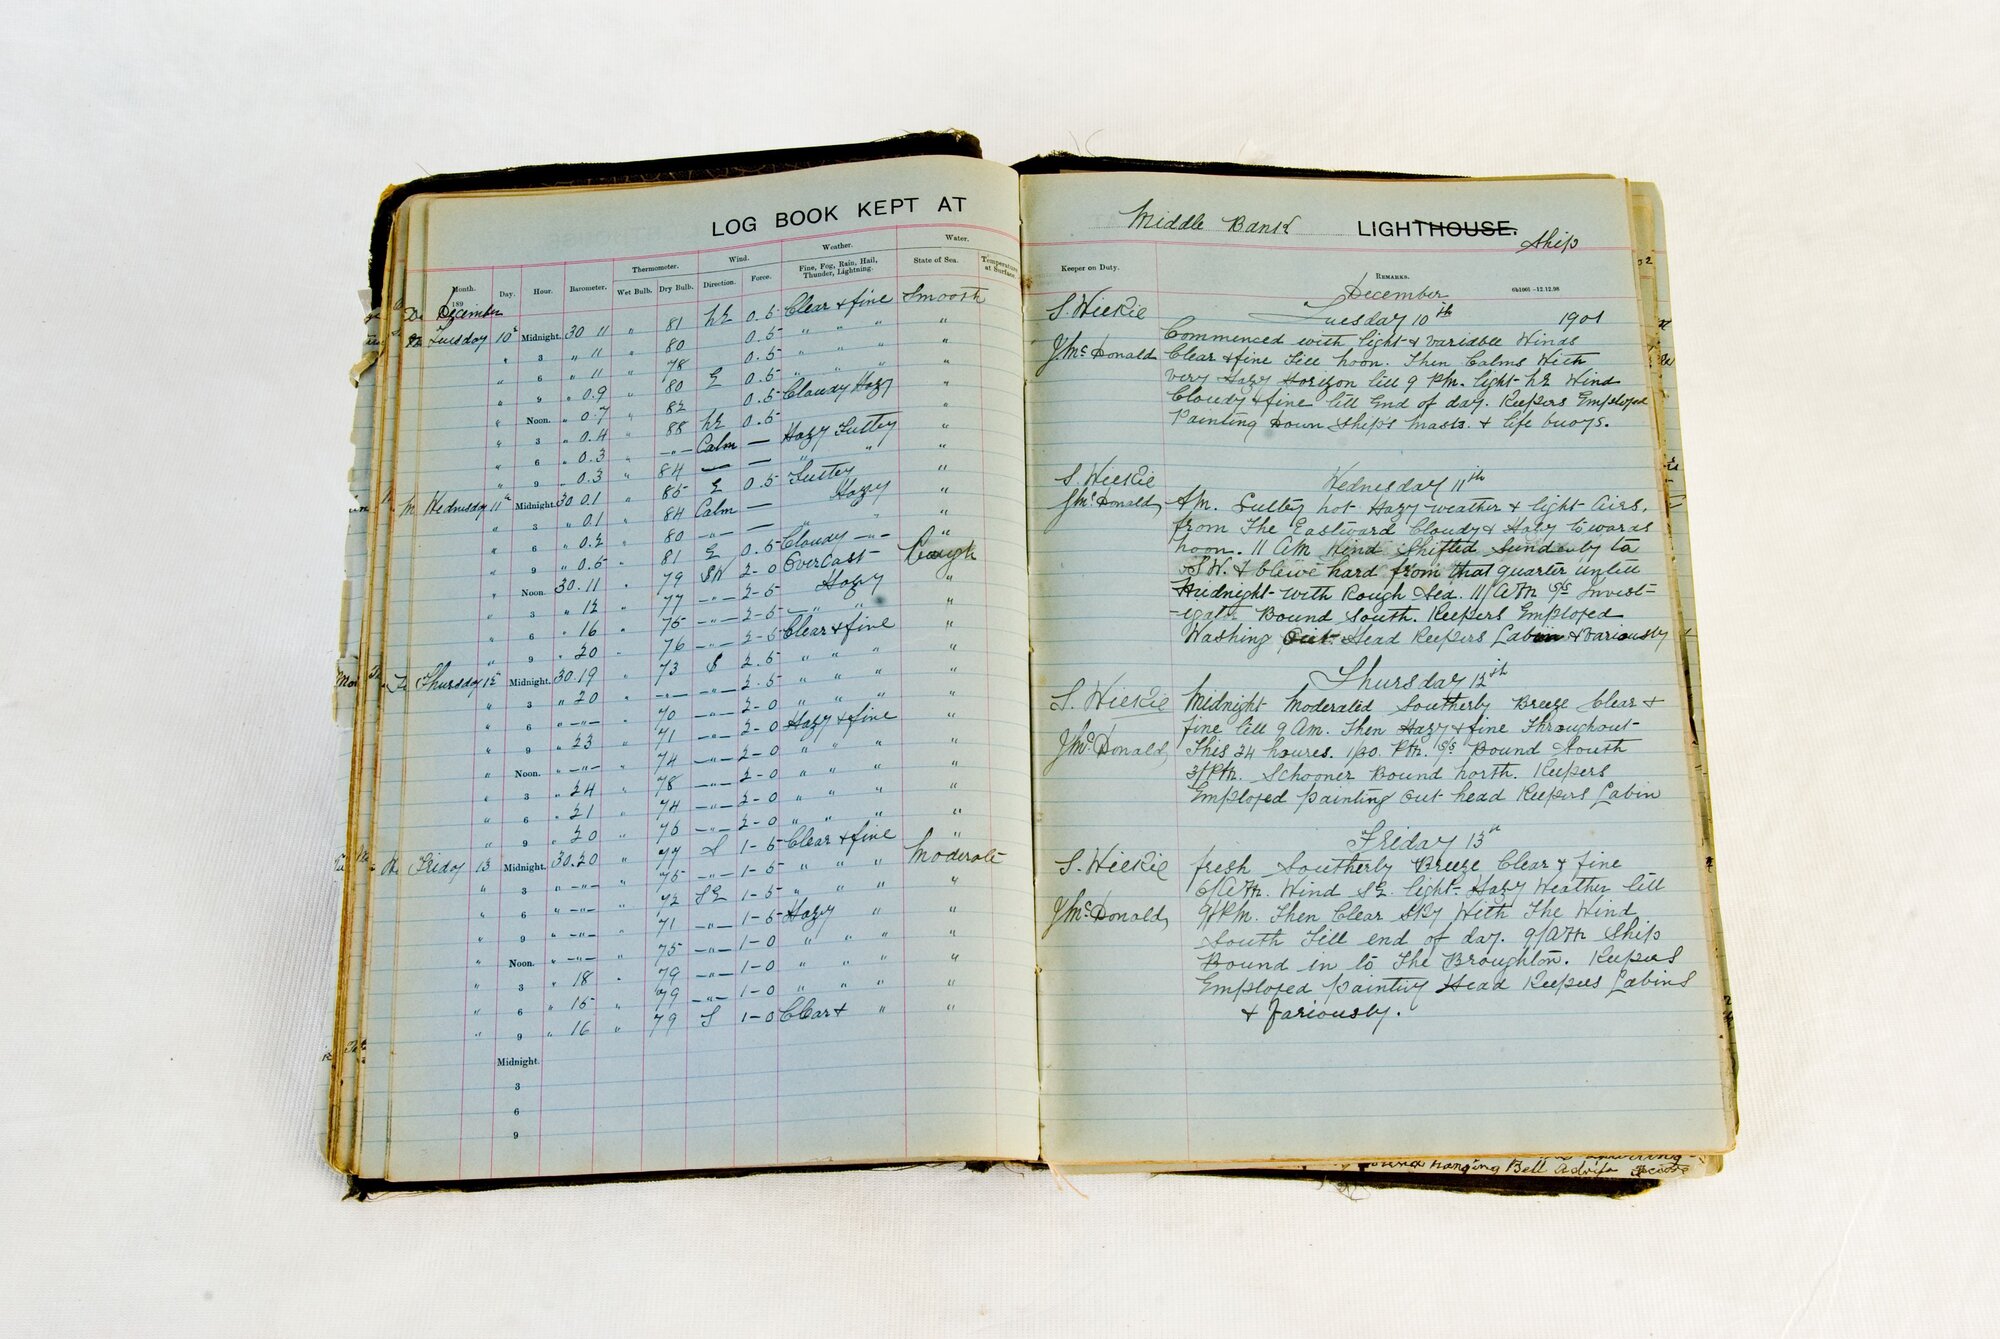 LOG BOOK KEPT AT
Month. Day. Hour. Barometer. Thermometer. Wet Bulb. Dry Bulb. Wind. Direction. Force. Weather. Fine, Fog, Rain, Hail, Thunder, Lightning. Water. State of Sea. Temperature at Surface.
189
December
Tuesday 10th Midnight. 30 11 " 81 NE 0.5 Clear & fine Smooth
" 3 " 11 " 80 0.5 " " " "
" 6 " 11 " 78 0.5 " " " "
" 9 " 0.9 " 80 E 0.5 " " " "
" Noon. " 0.7 " 82 0.5 Cloudy Hazy "
" 3 " 0.4 " 88 NE 0.5 "
" 6 " 0.3 " -"- Calm — Hazy Sultry "
" 9 " 0.3 " 84 — — " " "
Wednesday 11th Midnight. 30 0.1 " 85 E 0.5 Sultry "
" 3 " 0.1 " 84 Calm — Hazy "
" 6 " 0.2 " 80 -"- — " " "
" 9 " 0.5 " 81 E 0.5 Cloudy -"- "
" Noon. 30.11 " 79 SW 2-0 Overcast Rough
" 3 " 12 " 77 -"- 2-5 Hazy "
" 6 " 16 " 75 -"- 2-5 -"- " "
" 9 " 20 " 76 -"- 2-5 Clear & fine "
Thursday 12 Midnight. 30.19 " 73 S 2.5 " " " "
" 3 " 20 " -"- -"- 2-5 " " " "
" 6 " -"- " 70 -"- 2-0 " " " "
" 9 " 23 " 71 -"- 2-0 Hazy & fine "
" Noon. " -"- " 74 -"- 2-0 " " " "
" 3 " 24 " 78 -"- 2-0 " " " "
" 6 " 21 " 74 -"- 2-0 " " " "
" 9 " 20 " 76 -"- 2-0 " " " "
Friday 13 Midnight. 30.20 " 77 S 1-5 Clear & fine Moderate
" 3 " -"- " 75 -"- 1-5 " " " "
" 6 " -"- " 72 SE 1-5 " " " "
" 9 " -"- " 71 -"- 1-5 Hazy " "
" Noon. " -"- " 75 -"- 1-0 " " " "
" 3 " 18 " 79 -"- 1-0 " " " "
" 6 " 15 " 79 -"- 1-0 " " " "
" 9 " 16 " 79 S 1-0 Clear & " "
Midnight.
3
6
9
Middle Bank LIGHTHOUSE. Ship
Keeper on Duty. REMARKS.
December 6b1001 -12.12.98
S. Wilkie Tuesday 10th 1901
Commenced with light & variable Winds
J McDonald Clear & fine Till Noon. Then Calms With
very Hazy Horizon till 9 PM. light NE Wind
Cloudy & fine till End of day. Keepers Employed
Painting Down Ship's masts & life buoys.
S. Wilkie Wednesday 11th
J McDonald AM. Sultry hot Hazy weather & light Airs.
from The Eastward Cloudy & Hazy towards
Noon. 11 AM Wind Shifted Suddenly to
SW. & blew hard from that quarter untill
Midnight With Rough Sea. 11/AM SS Invest-
-igator Bound South. Keepers Employed
Washing Out Head Keepers Cabin & Variously
Thursday 12th
S. Wilkie Midnight Moderated Southerly Breeze Clear &
fine till 9 AM. Then Hazy & fine Throughout
J McDonald This 24 houres. 1/30. PM. SS Bound South
3/PM. Schooner Bound North. Keepers
Employed painting out head Keepers Cabin
Friday 13th
S. Wilkie fresh Southerly Breeze Clear & fine
6/AM. Wind SE. light Hazy Weather till
J McDonald 9/PM. Then Clear Sky With The Wind
South Till end of day. 9/AM Ship
Bound in to The Broughton. Keepers
Employed painting Head Keepers Cabins
& Variously.
hanging Bell Adrift